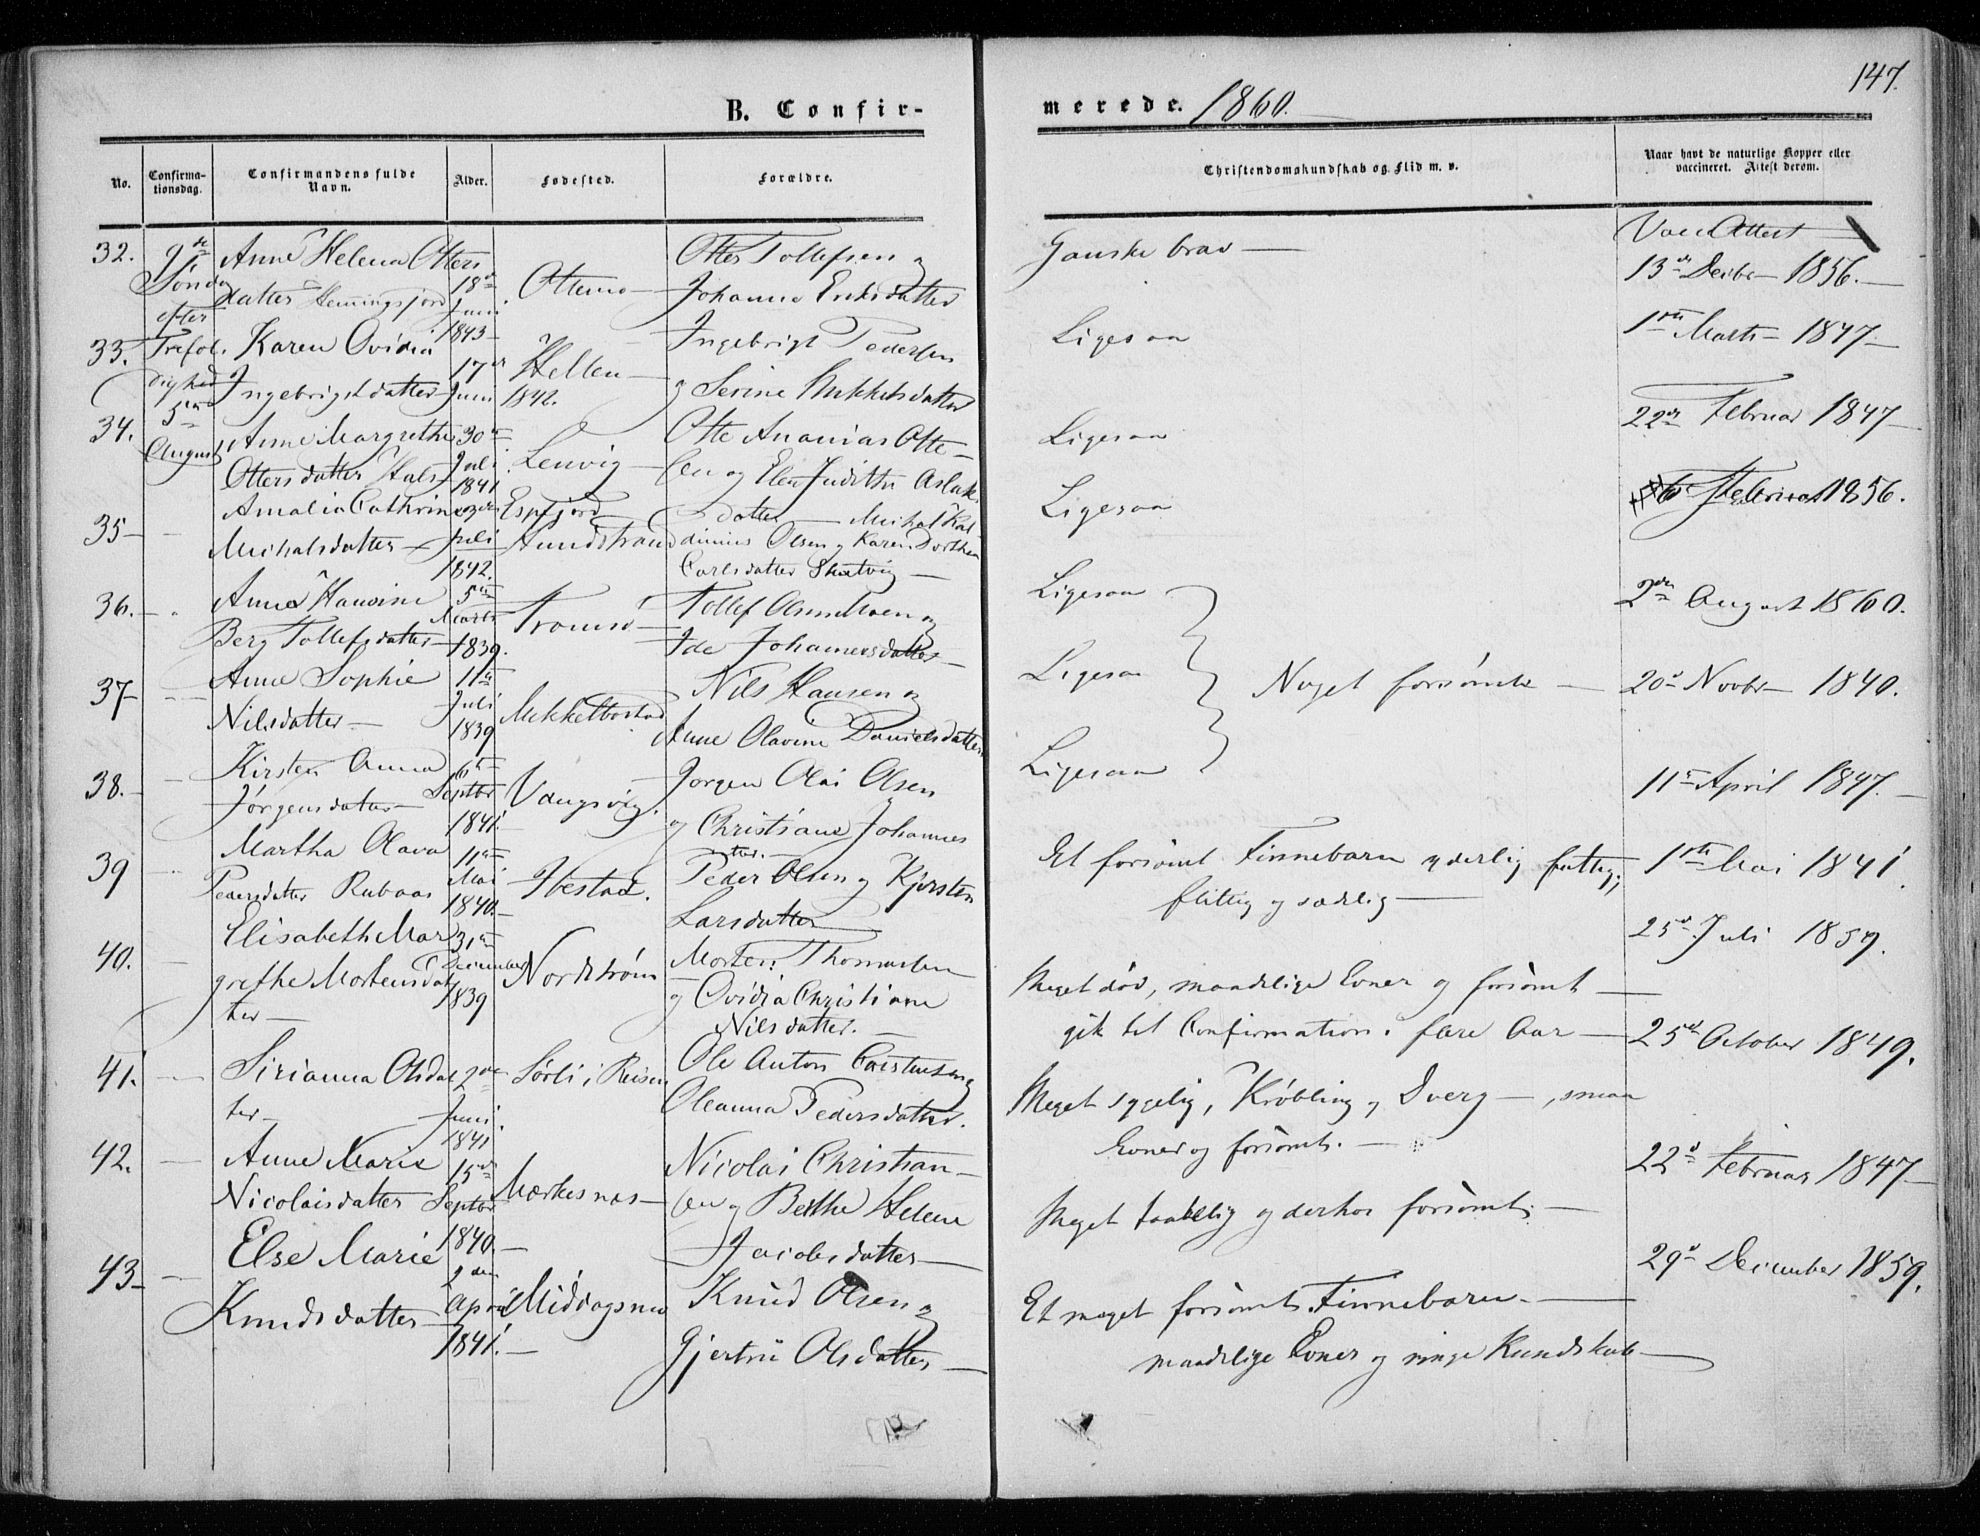 147.
B. Confir-
merede. 1860.
No.
Confirma-
tionsdag.
Confirmandens fulde
Navn.
Alder.
Fødested.
Forældre.
Christendomskundskab og Flid m. v.
Naar havt de naturlige Kopper eller
vaccineret. Attest derom.
32.
9de
Søndag
efter
Trefol-
dighed
5te
August
Anne Helena Otters
datter Hemingsfjord
18de
Juni
1843
Otter Tollefsen og
Johanna Eriksdatter
Ganske brav
Vacc Attest
13de Decbr 1856.
33.
Karen Ovidia
Ingebrigtdatter
17de
Juni
1842.
Hellen
Ingebrigt Pedersen
og Serine Mikkelsdatter
Ligesaa
1ste Marts 1847
34.
Anne Margrethe
Ottersdatter Hals
30te
Juli
1841
Lenvig
Otte Ananias Otte-
sen og Elen Judithe Aslak-
datter
Ligesaa
22de Februar 1847
35
Amalia Cathrine
Michalsdatter
Juli
1842.
Espejord
Michal Kal-
dinius Olsen og Karen Dorthea
Carlsdatter Skatvig
Ligesaa
6 Februar 1856.
36.
Anna Hansine
Berg Tollefsdatter
5te
Marts
1839.
Tromsø
Tollef Amundsen og
Ida Johannesdatter
Ligesaa
2den August 1860.
37
Anne Sophie
Nilsdatter
11te
Juli
1839
Mikkelbostad
Nils Hansen og
Anne Olavine Danielsdatter
Ligesaa
Noget forsømte
20de Novbr 1840.
38.
Kirsten Anna
Jørgensdatter
6te
Septbr
1841.
Vangsvig.
Jørgen Olai Olsen
og Christiane Johannes
dtter.
Ligesaa
11te April 1847.
39
Martha Olava
Pedersdatter Rubaas
11te
Mai
1840.
Ibestad.
Peder Olsen og Kjersten
Larsdatter
Et forsømt Finnebarn yderlig fattig;
flittig og sædelig
1ste Mai 1841.
40.
Elisabeth Mar
grethe Mortensdat
ter
31te
December
1839
Nordstrøm
Morten Thomassen
og Ovidia Christiane
Nilsdatter.
Meget død, maadelige Evner og forsømt
gik til Confirmation i flere Aar
25de Juli 1859.
41.
Sirianna Olsdat
ter
2den
Juni
1841
Sørli i Reisen
Ole Anton Carstensen og
Oleanna Pedersdatter.
Meget sygelig, Krøbling og Dverg, smaa
Evner og forsømt.
25de October 1849.
42.
Anne Marie
Nicolaisdatter
15de
Septbr
1840.
Mærkesnæs
Nicolai Christian-
sen og Berthe Helene
Jacobsdatter
Meget taabelig og derhos forsømt.
22de Februar 1847
43
Else Marie
Knudsdatter
2den
April
1841.
Middagsnæs
Knud Olsen og
Gjertru Olsdatter
Et meget forsømt Finnebarn.
maadelige Evner og ringe Kundskab
29de December 1859.